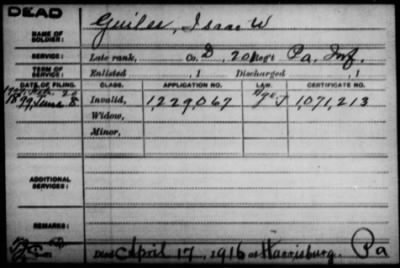 DEAD
NAME OF SOLDIER: Guiles, Isaac W
SERVICE: Late rank, Co. D, 201 Reg't Pa. Inf.
TERM OF SERVICE: Enlisted , 1 Discharged , 1
DATE OF FILING. CLASS. APPLICATION NO. LAW. CERTIFICATE NO.
1899, June 8 Invalid, 1,229,067 1,071,213
Widow,
Minor,
ADDITIONAL SERVICES:
REMARKS:
Died April 17, 1916 at Harrisburg. Pa